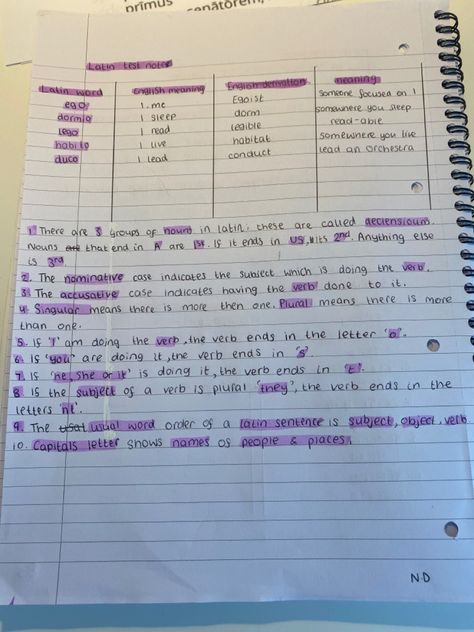 prīmus
senātōrem,
Latin test notes
Latin word English meaning English derivation meaning
ego I, me Egoist someone focused on I
dormio I sleep dorm somewhere you sleep
lego I read legible read-able
habito I live habitat somewhere you live
duco I lead conduct lead an orchestra
1. There are 3 groups of nouns in latin. these are called declensiouns.
Nouns are that end in A are 1st. If it ends in US, its 2nd. Anything else
is 3rd
2. The nominative case indicates the subject which is doing the verb.
3. The accusative case indicates having the verb done to it.
4. Singular means there is more then one. Plural means there is more
than one.
5. If 'I' am doing the verb, the verb ends in the letter 'o'.
6. If 'you' are doing it, the verb ends in 's'.
7. If 'he, she or it' is doing it, the verb ends in 't'.
8. If the subject of a verb is plural 'they', the verb ends in the
letters 'nt'.
9. The usual word order of a latin sentence is subject, object, verb
10. Capitals letter shows names of people & places.
N.D